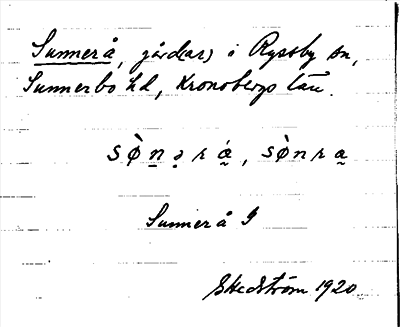 Sunnerå, gård(ar) i Ryssby sn,
Sunnerbo hd, Kronobergs län.
sø̀n̠ə̣rá̰, sø̀nra̰
Sunnerå G
E Hedström 1920.